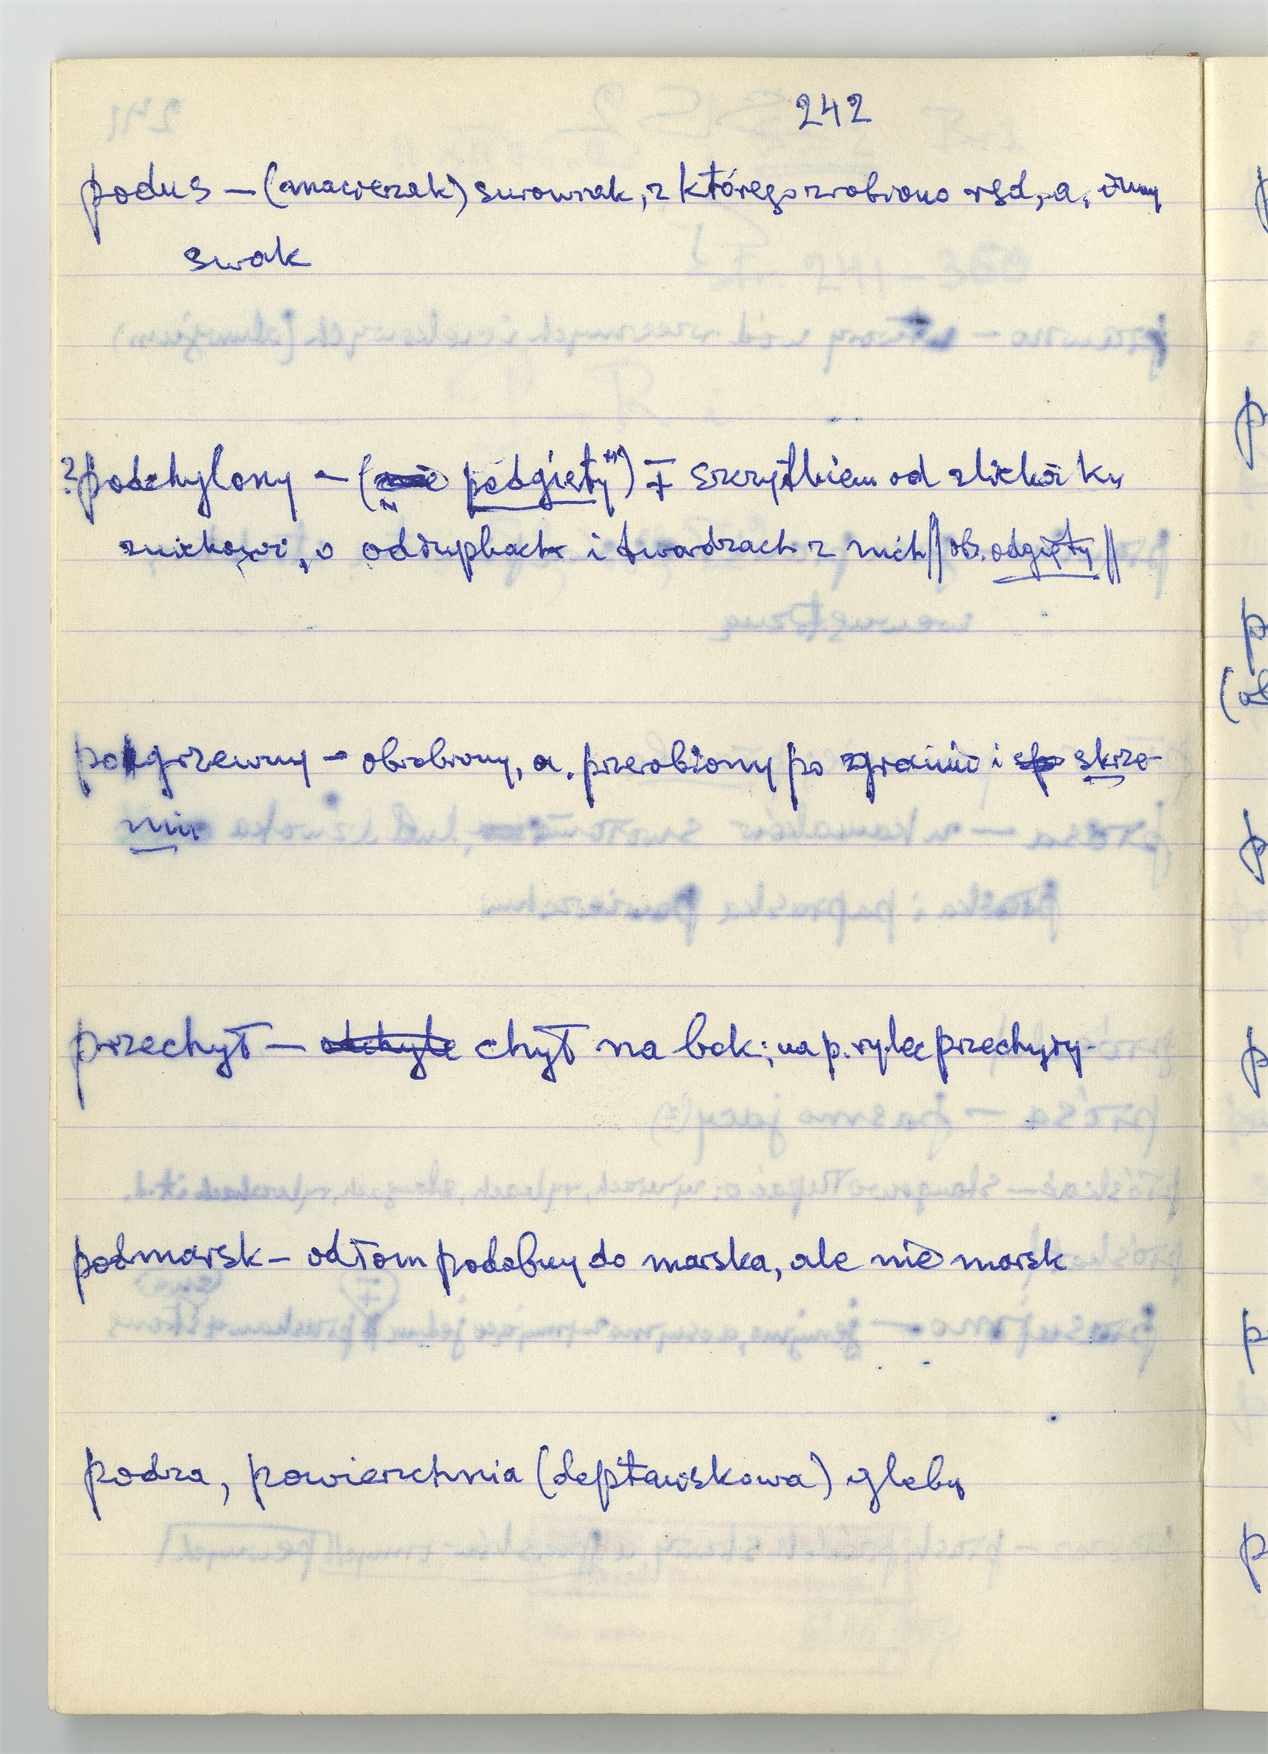 242
podus — (macierzak) surowiak, z którego zrobiono rsd, a. inny
swak
? podchylony — ( podgięty") ∓ skrzydłem od zlicków ku
o odłupkach i twardzcach z nich // ob. odgięty //
podgrzewny — obrobiony, a. przerobiony po zgraniu i skrze-
niu
przechył — odchyle chył na bok; nap. rylec przechyły-
podmarsk — odłom podobny do marska, ale nie marsk
podza, powierzchnia (deptawskowa) gleby